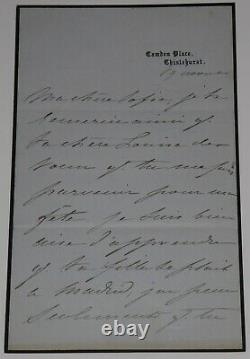 Camden Place.
Chislehurst.
19 novem
Ma chère Sofia, je te
remercie ainsi q
ta chère Louisa des
vœux q tu m'as fait
parvenir pour ma
fête je suis bien
aise d'apprendre
q ta fille se plait
à Madrid
seulement q tu